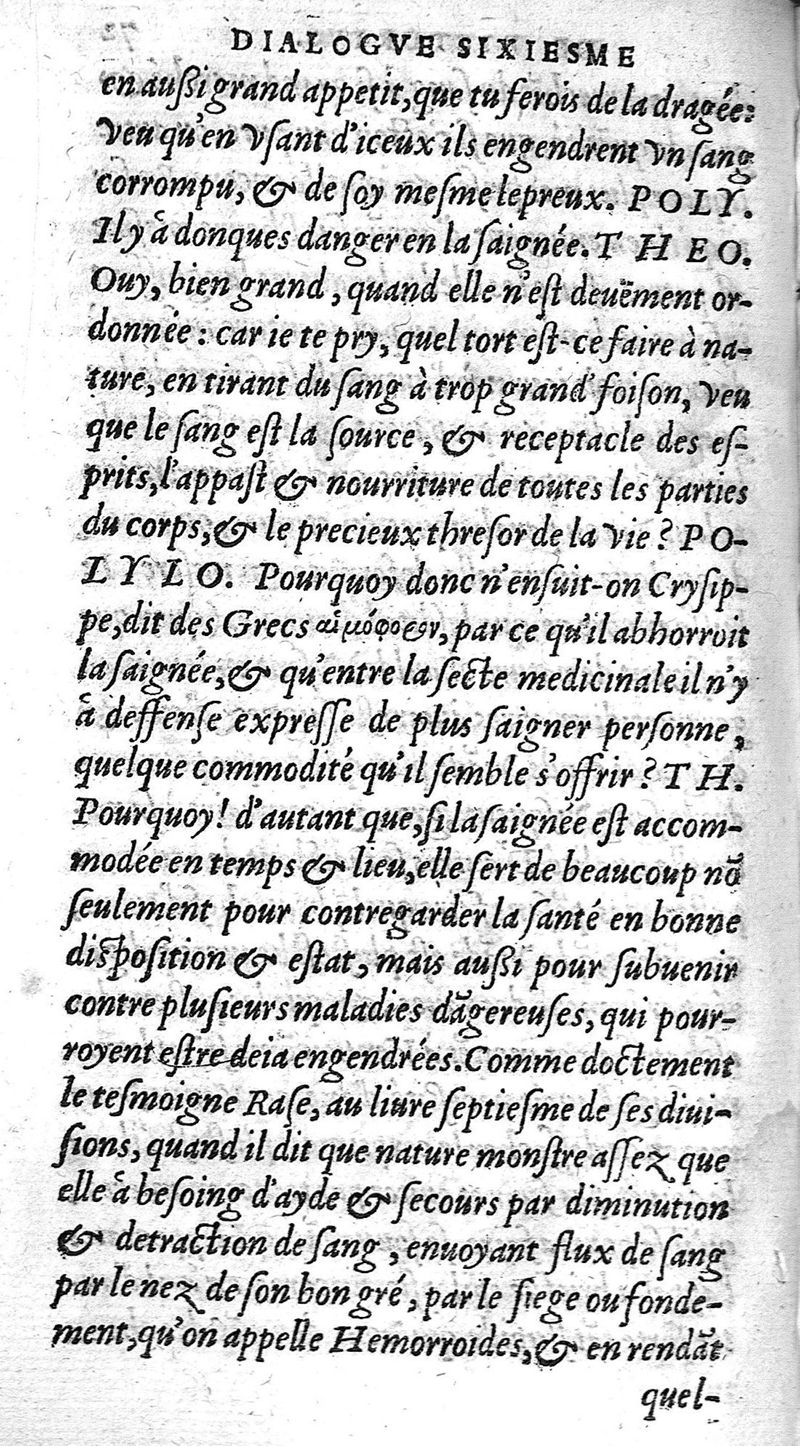 DIALOGVE SIXIESME
en außi grand appetit, que tu ferois de la dragée:
veu qu'en vſant d'iceux ils engendrent vn ſang
corrompu, & de ſoy meſme lepreux. POLY.
Il y à donques danger en la ſaignée. THEO.
Ouy, bien grand, quand elle n'eſt deuëment or-
donnée: car ie te pry, quel tort eſt-ce faire à na-
ture, en tirant du ſang à trop grand foiſon, veu
que le ſang eſt la ſource, & receptacle des eſ-
prits, l'appaſt & nourriture de toutes les parties
du corps, & le precieux threſor de la vie? PO-
LYLO. Pourquoy donc n'enſuit-on Cryſip-
pe, dit des Grecs αἱμόφοβον, par ce qu'il abhorroit
la ſaignée, & qu'entre la ſecte medicinale il n'y
à deffenſe expreſſe de plus ſaigner perſonne,
quelque commodité qu'il ſemble s'offrir? TH.
Pourquoy! d'autant que, ſi la ſaignée eſt accom-
modée en temps & lieu, elle ſert de beaucoup nō
ſeulement pour contregarder la ſanté en bonne
diſpoſition & eſtat, mais außi pour ſubuenir
contre pluſieurs maladies dāgereuſes, qui pour-
royent eſtre deia engendrées. Comme doctement
le teſmoigne Raſe, au liure ſeptieſme de ſes diui-
ſions, quand il dit que nature monſtre aſſez que
elle à beſoing d'ayde & ſecours par diminution
& detraction de ſang, enuoyant flux de ſang
par le nez de ſon bon gré, par le ſiege ou fonde-
ment, qu'on appelle Hemorroides, & en rendāt
quel-